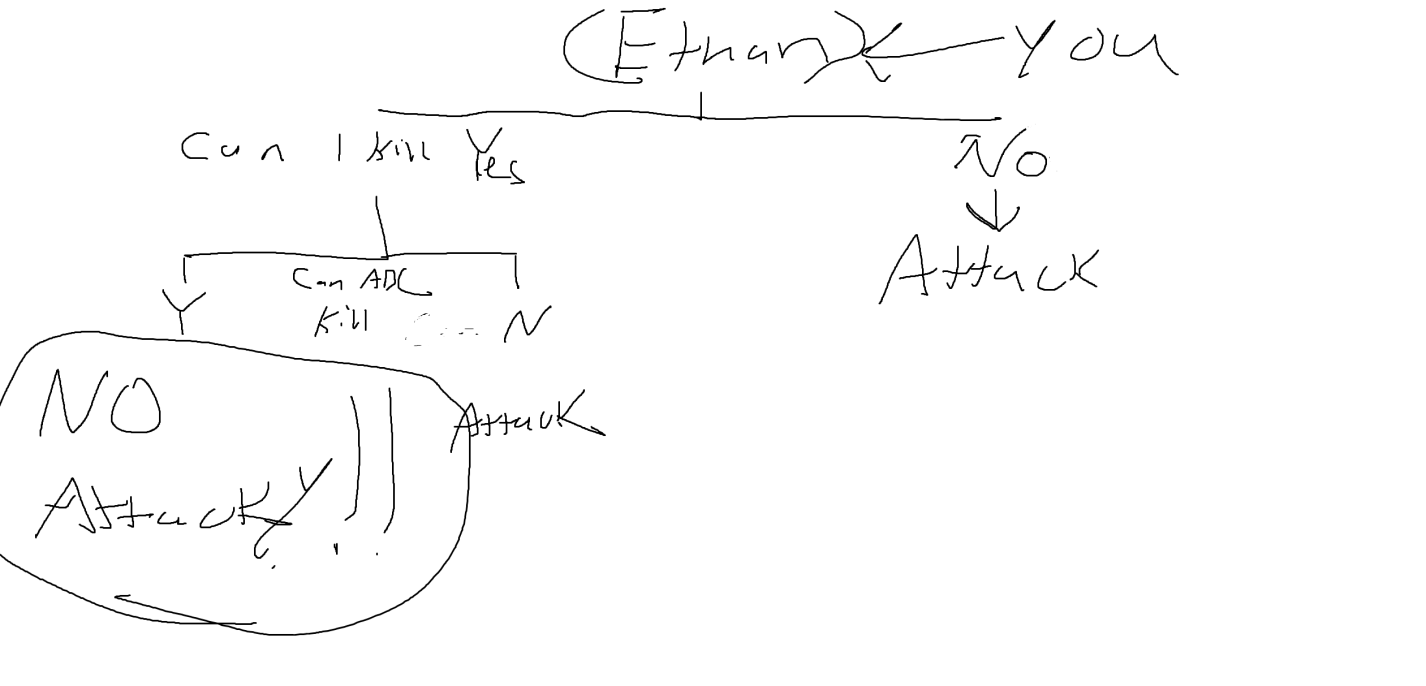 (Ethan) YOU
Can I Kill Yes
No
Attack
Can ADC
Kill
Y
N
NO
Attack!!!
Attack